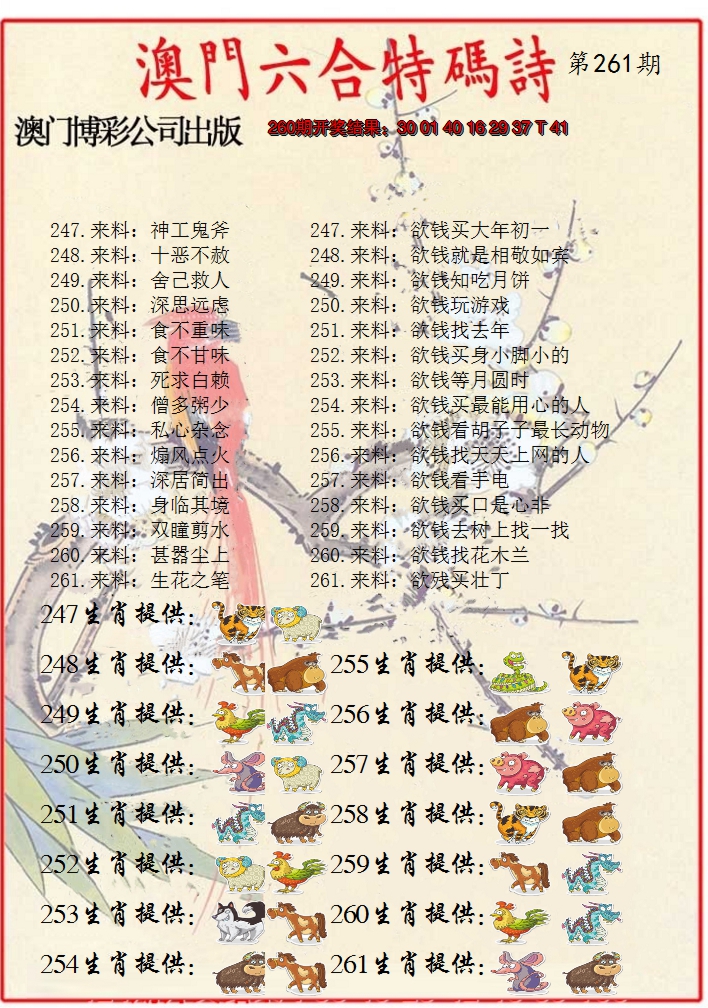 澳門六合特碼詩 第261期
澳门博彩公司出版 260期开奖结果：30 01 40 16 29 37 T 41
247.来料：神工鬼斧 247.来料：欲钱买大年初一
248.来料：十恶不赦 248.来料：欲钱就是相敬如宾
249.来料：舍己救人 249.来料：欲钱知吃月饼
250.来料：深思远虑 250.来料：欲钱玩游戏
251.来料：食不重味 251.来料：欲钱找去年
252.来料：食不甘味 252.来料：欲钱买身小脚小的
253.来料：死求白赖 253.来料：欲钱等月圆时
254.来料：僧多粥少 254.来料：欲钱买最能用心的人
255.来料：私心杂念 255.来料：欲钱看胡子于最长动物
256.来料：煽风点火 256.来料：欲钱找天天上网的人
257.来料：深居简出 257.来料：欲钱看手电
258.来料：身临其境 258.来料：欲钱买口是心非
259.来料：双瞳剪水 259.来料：欲钱去树上找一找
260.来料：甚嚣尘上 260.来料：欲钱找花木兰
261.来料：生花之笔 261.来料：欲残买壮丁
247生肖提供：
248生肖提供： 255生肖提供：
249生肖提供： 256生肖提供：
250生肖提供： 257生肖提供：
251生肖提供： 258生肖提供：
252生肖提供： 259生肖提供：
253生肖提供： 260生肖提供：
254生肖提供： 261生肖提供：